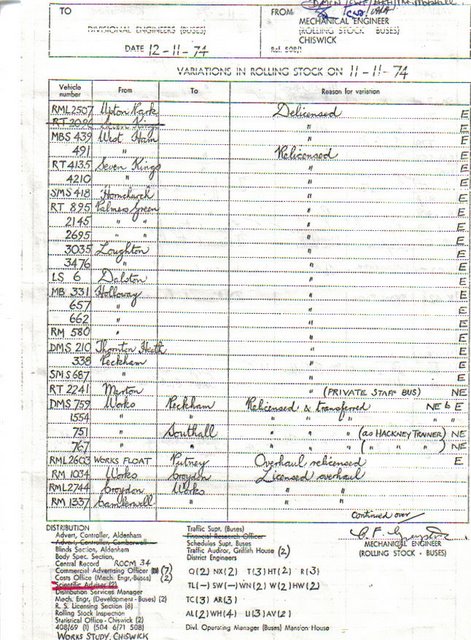 TO
FROM
MECHANICAL ENGINEER
DIVISIONAL ENGINEERS (BUSES)
(ROLLING STOCK BUSES)
CHISWICK
DATE 12-11-74
Ref. 508/1
VARIATIONS IN ROLLING STOCK ON 11-11-74
Vehicle number From To Reason for variation
RML2507 Upton Park Delicensed E
RT 2096 " E
MBS 439 West Ham " E
491 " Relicensed E
RT 4135 Seven Kings " E
4210 " " E
SMS 418 Hornchurch " E
RT 895 Palmers Green " E
2145 " " " E
2695 " " " E
3035 Loughton " E
3476 " " E
LS 6 Dalston " E
MB 331 Holloway " E
657 " " E
662 " " E
RM 580 " " E
DMS 210 Thornton Heath " E
338 Peckham " E
SMS 687 " " E
RT 2241 Merton " (PRIVATE STAFF BUS) NE
DMS 759 Works Peckham Relicensed & transferred NE to E
1554 " " " " "
751 " Southall " " " (as HACKNEY TRAINER) NE
767 " " " " " ( " " " ) NE
RML2603 WORKS FLOAT Putney Overhaul relicensed E
RM 1034 Works Croydon Licensed overhaul
RML2744 Croydon Works " "
RM 1337 Camberwell " " "
continued over
DISTRIBUTION
Advert, Controller, Aldenham
Advert, Controller, Camberwell
Blinds Section, Aldenham
Body Supt. Section,
Central Record ROOM 34
Commercial Advertising Officer (7)
Costs Office (Mech. Engr. Buses) (2)
Scientific Adviser (2)
Distribution Services Manager
Mech. Engr, (Development - Buses) (2)
R. S. Licensing Section (6)
Rolling Stock Inspection
Statistical Office - Buses (2)
408/69 (1) (504 6/71 508)
WORKS STUDY, CHISWICK
Traffic Supt. (Buses)
Financial Research Officer
Schedules Supt. Buses
Traffic Auditor, Griffith House (2)
District Engineers
Q(2) NX(2) T(3) HT(2) R(3)
TL(-) SW(-) WN(2) W(2) HW(2)
TC(3) AR(3)
AL(2) WH(4) U(3) AV(2)
Divl. Operating Manager (Buses) Mansion House
MECHANICAL ENGINEER
(ROLLING STOCK - BUSES)